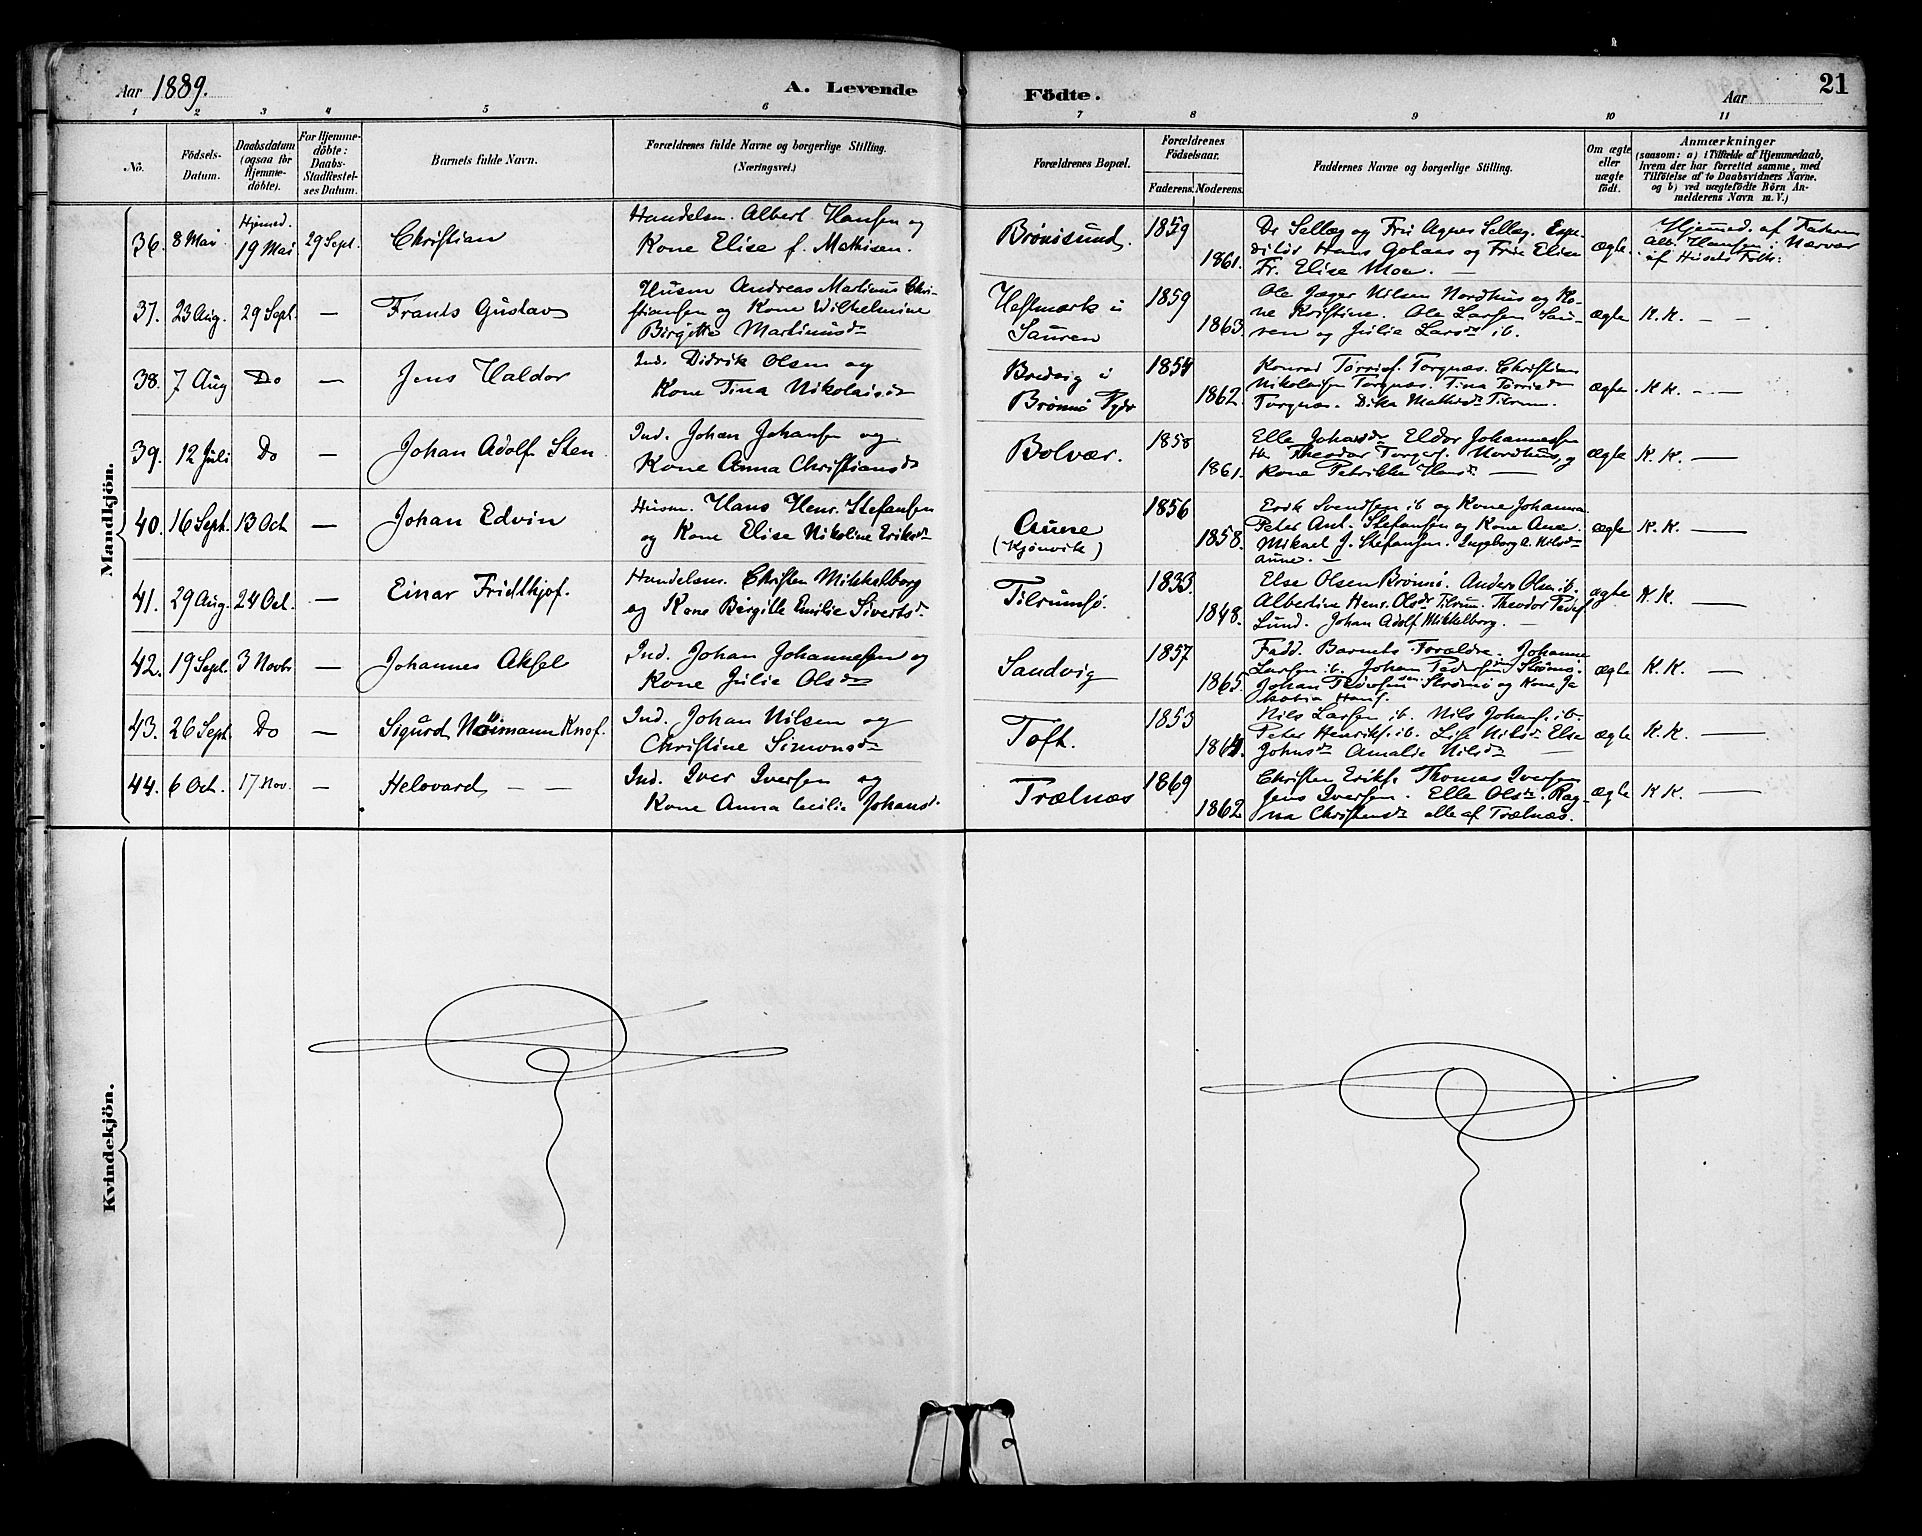 Aar 1889.
A. Levende Födte.
Aar
21
1 2 3 4 5 6 7 8 9 10 11
No.
Födsels-
Datum.
Daabsdatum
(ogsaa for
Hjemme-
döbte).
For Hjemme-
döbte:
Daabs-
Stadfæstel-
ses Datum.
Barnets fulde Navn.
Forældrenes fulde Navne og borgerlige Stilling.
(Næringsvei.)
Forældrenes Bopæl.
Forældrenes
Födselsaar.
Faderens. Moderens.
Faddernes Navne og borgerlige Stilling.
Om ægte
eller
uægte
födt.
Anmærkninger
(saasom: a) i Tilfælde af Hjemmedaab,
hvem der har forrettet samme, med
Tilföielse af to Daabsvidners Navne,
og b) ved uægtefödte Börn An-
melderens Navn m.V.)
Mandkjön.
36. 8 Mai Hjemmed. 19 Mai 29 Sept. Christian
Handelsm. Albert Hansen og
Kone Elise f. Mathisen.
Brönösund. 1859 1861.
Dr Selleg og Fru Agnes Selleg. Expe-
ditör Hans Gohaas og Frue Elise
Fr. Elise Moe. —
ægte.
Hjemmed. af Faderen
Alb. Hansen i Nærvær
af Husets Folk.
37. 23 Aug. 29 Sept. — Frants Gustav
Husm Andreas Martinus Chri-
stiansen og Kone Wilhelmine
Birgitte Martinusdr
Hestmark i
Sauren
1859 1863.
Ole Jæger Nilsen Nordhus og Ko-
ne Kristine. Ole Larsen Sau-
ren og Julie Larsdr ib.
ægte K.K. — —
38. 7 Aug Do — Jens Haldor
Ind. Didrik Olsen og
Kone Tina Nikolaisdr
Bredvig i
Brönnö
1854 1862.
Konrad Torgnæs. Christian
Nikolaisen Torgnæs. Tina
Torgnæs. Dika Mathisdr Tilrum.
ægte. K.K. — —
39. 12 Juli Do — Johan Adolf Sten
Ind. Johan Johansen og
Kone Anna Christiansdr
Bolvær. 1858 1861.
Elle Johansdr Eldor Johannessen
Theodor Nordhus, og
Kone Petrikke Hansdr —
ægte K.K. —
40. 16 Sept. 13 Oct — Johan Edvin
Husm. Hans Henr. Stefansen
og Kone Elise Nikoline Eriksdr
Aune
(Kjönvik)
1856 1858.
Erik Svendsen ib og Kone Johanna
Peter Ant. Stefansen og Kone Ane.
Mikael J. Stefansen. Ingeborg A. Nilsdr
Aune. —
ægte K.K. —
41. 29 Aug. 24 Oct. — Einar Fridthjof.
Handelsm. Christen Mikkelborg
og Kone Birgitte Emilie Sivertsdr
Tilrumsö. 1833. 1848.
Else Olsen Brönnö. Anders Olsen ib.
Albertine Henr. Olsdr Tilrum. Theodor Peders
Lund. Johan Adolf Mikkelborg. —
ægte K.K. —
42. 19 Sept. 3 Novbr — Johannes Aksel
Ind. Johan Johannessen og
Kone Julie Olsdr
Sandvig 1857 1865.
Fadd. Barnets Forældre. Johanne
Larsen ib. Johan Pedersen Strömö
Johan Strömö og Kone Ja
kobia Hans.
ægte K.K. —
43. 26 Sept. Do — Sigurd Normann Knof.
Ind. Johan Nilsen og
Christine Simonsdr
Toft. 1853 1864.
Nils Larsen ib. Nils Johans. ib.
Peter Henriks. ib. Lise Nilsdr Else
Johnsdr Amalie Nilsdr —
ægte K.K. —
44. 6 Oct. 17 Nov. — Helovard — —
Ind. Iver Iversen og
Kone Anna Cecilie Johansd.
Trælnæs 1869 1862
Christen Eriks. Thomas Iversen
Jens Iversen. Elle Olsdr. Rag-
na Christensdr alle af Trælnæs.
ægte K K. —
Kvindekjön.